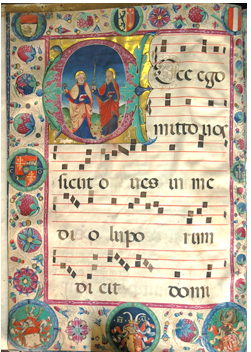 Ecce ego
mitto vos
sicut o ves in me
di o lupo rum
di cit domi